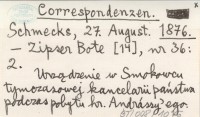 Correspondenzen.
Schmecks, 27. August. 1876.
— Zipser Bote [14], nr 36:
2.
Urządzenie w Smokowcu
tymczasowej kancelarii państwa
podczas pobytu hr. Andrássy'ego.